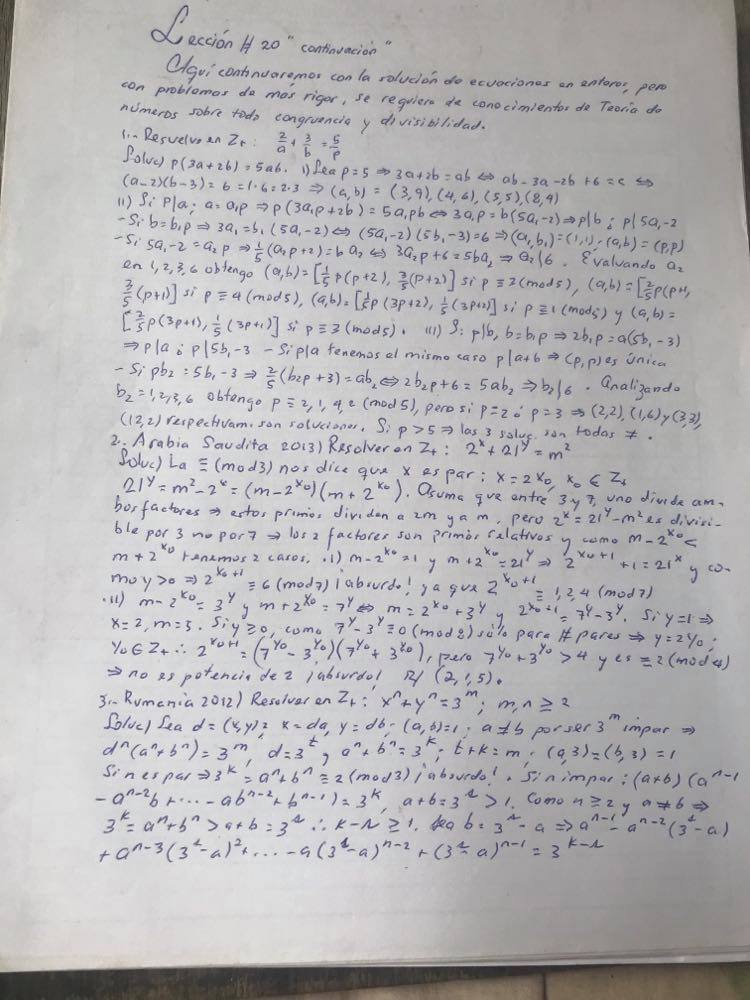 Lección # 20 "continuación"
Aquí continuaremos con la solución de ecuaciones en enteros, pero
con problemas de más rigor, se requiere de conocimientos de Teoría de
números sobre todo congruencia y divisibilidad.
1.- Resuelva en Z+: 2/a + 3/b = 5/p
Soluc) p(3a+2b) = 5ab. i) Sea p=5 ⇒ 3a+2b=ab ⇔ ab-3a-2b+6=6 ⇔
(a-2)(b-3)=6=1·6=2·3 ⇒ (a,b) = (3,9), (4,6), (5,5), (8,4)
ii) Si p|a; a=a₁p ⇒ p(3a₁p+2b) = 5a₁pb ⇔ 3a₁p = b(5a₁-2) ⇒ p|b ó p|5a₁-2
- Si b=b₁p ⇒ 3a₁=b₁(5a₁-2) ⇔ (5a₁-2)(5b₁-3)=6 ⇒ (a₁,b₁)=(1,1) ∴ (a,b)=(p,p)
- Si 5a₁-2=a₂p ⇒ 1/5(a₂p+2)=ba₂ ⇔ 3a₂p+6=5ba₂ ⇒ a₂|6. Evaluando a₂
en 1,2,3,6 obtengo (a,b)=[1/5p(p+2), 3/5(p+2)] si p≡3(mod5), (a,b)=[2/5p(p+1,
3/5(p+1)] si p≡4(mod5), (a,b)=[1/5p(3p+2), 1/5(3p+2)] si p≡1(mod5) y (a,b)=
[2/5p(3p+1), 1/5(3p+1)] si p≡3(mod5). iii) Si p|b, b=b₁p ⇒ 2b₁p=a(5b₁-3)
⇒ p|a ó p|5b₁-3 - Si p|a tenemos el mismo caso p|a+b ⇒ (p,p) es única
- Si pb₂=5b₁-3 ⇒ 2/5(b₂p+3)=ab₂ ⇔ 2b₂p+6=5ab₂ ⇒ b₂|6. Analizando
b₂=1,2,3,6 obtengo p≡2,1,4,2(mod5), pero si p=2 ó p=3 ⇒ (2,2), (1,6) y (3,3),
(12,2) respectivam. son soluciones. Si p>5 ⇒ las 3 soluc. son todas ≠.
2.- Arabia Saudita 2013) Resolver en Z+: 2ˣ+21ʸ=m²
Soluc) La ≡(mod3) nos dice que x es par: x=2x₀, x₀∈Z+
21ʸ=m²-2ˣ=(m-2ˣ⁰)(m+2ˣ⁰). Asuma que entre 3 y 7, uno divide am-
bos factores ⇒ estos primos dividen a 2m y a m, pero 2ˣ=21ʸ-m² es divisi-
ble por 3 no por 7 ⇒ los 2 factores son primos relativos y como m-2ˣ⁰<
m+2ˣ⁰ tenemos 2 casos. i) m-2ˣ⁰=1 y m+2ˣ⁰=21ʸ ⇒ 2ˣ⁰⁺¹+1=21ˣ y co-
mo y>0 ⇒ 2ˣ⁰⁺¹≡6(mod7) ¡absurdo! ya que 2ˣ⁰⁺¹≡1,2,4(mod7)
.ii) m-2ˣ⁰=3ʸ y m+2ˣ⁰=7ʸ ⇔ m=2ˣ⁰+3ʸ y 2ˣ⁰⁺¹=7ʸ-3ʸ. Si y=1 ⇒
x=2, m=5. Si y≥0, como 7ʸ-3ʸ≡0(mod8) sólo para # pares ⇒ y=2y₀;
y₀∈Z+ ∴ 2ˣ⁰⁺¹=(7ʸ⁰-3ʸ⁰)(7ʸ⁰+3ʸ⁰), pero 7ʸ⁰+3ʸ⁰>4 y es ≡2(mod4)
⇒ no es potencia de 2 ¡absurdo! R/ (2,1,5).
3.- Rumania 2012) Resolver en Z+: xⁿ+yⁿ=3ᵐ; m,n≥2
Soluc) Sea d=(x,y); x=da, y=db; (a,b)=1; a≠b por ser 3ᵐ impar ⇒
dⁿ(aⁿ+bⁿ)=3ᵐ, d=3ᵗ y aⁿ+bⁿ=3ᵏ; t+k=m; (a,3)=(b,3)=1
Si n es par ⇒ 3ᵏ=aⁿ+bⁿ≡2(mod3) ¡absurdo!. Si n impar: (a+b)(aⁿ⁻¹
-aⁿ⁻²b+...-abⁿ⁻²+bⁿ⁻¹)=3ᵏ, a+b=3ˢ>1. Como n≥2 y a≠b ⇒
3ᵏ=aⁿ+bⁿ>a+b=3ˢ ∴ k-s≥1. Sea b=3ˢ-a ⇒ aⁿ⁻¹-aⁿ⁻²(3ˢ-a)
+aⁿ⁻³(3ˢ-a)²+...-a(3ˢ-a)ⁿ⁻²+(3ˢ-a)ⁿ⁻¹=3ᵏ⁻ˢ